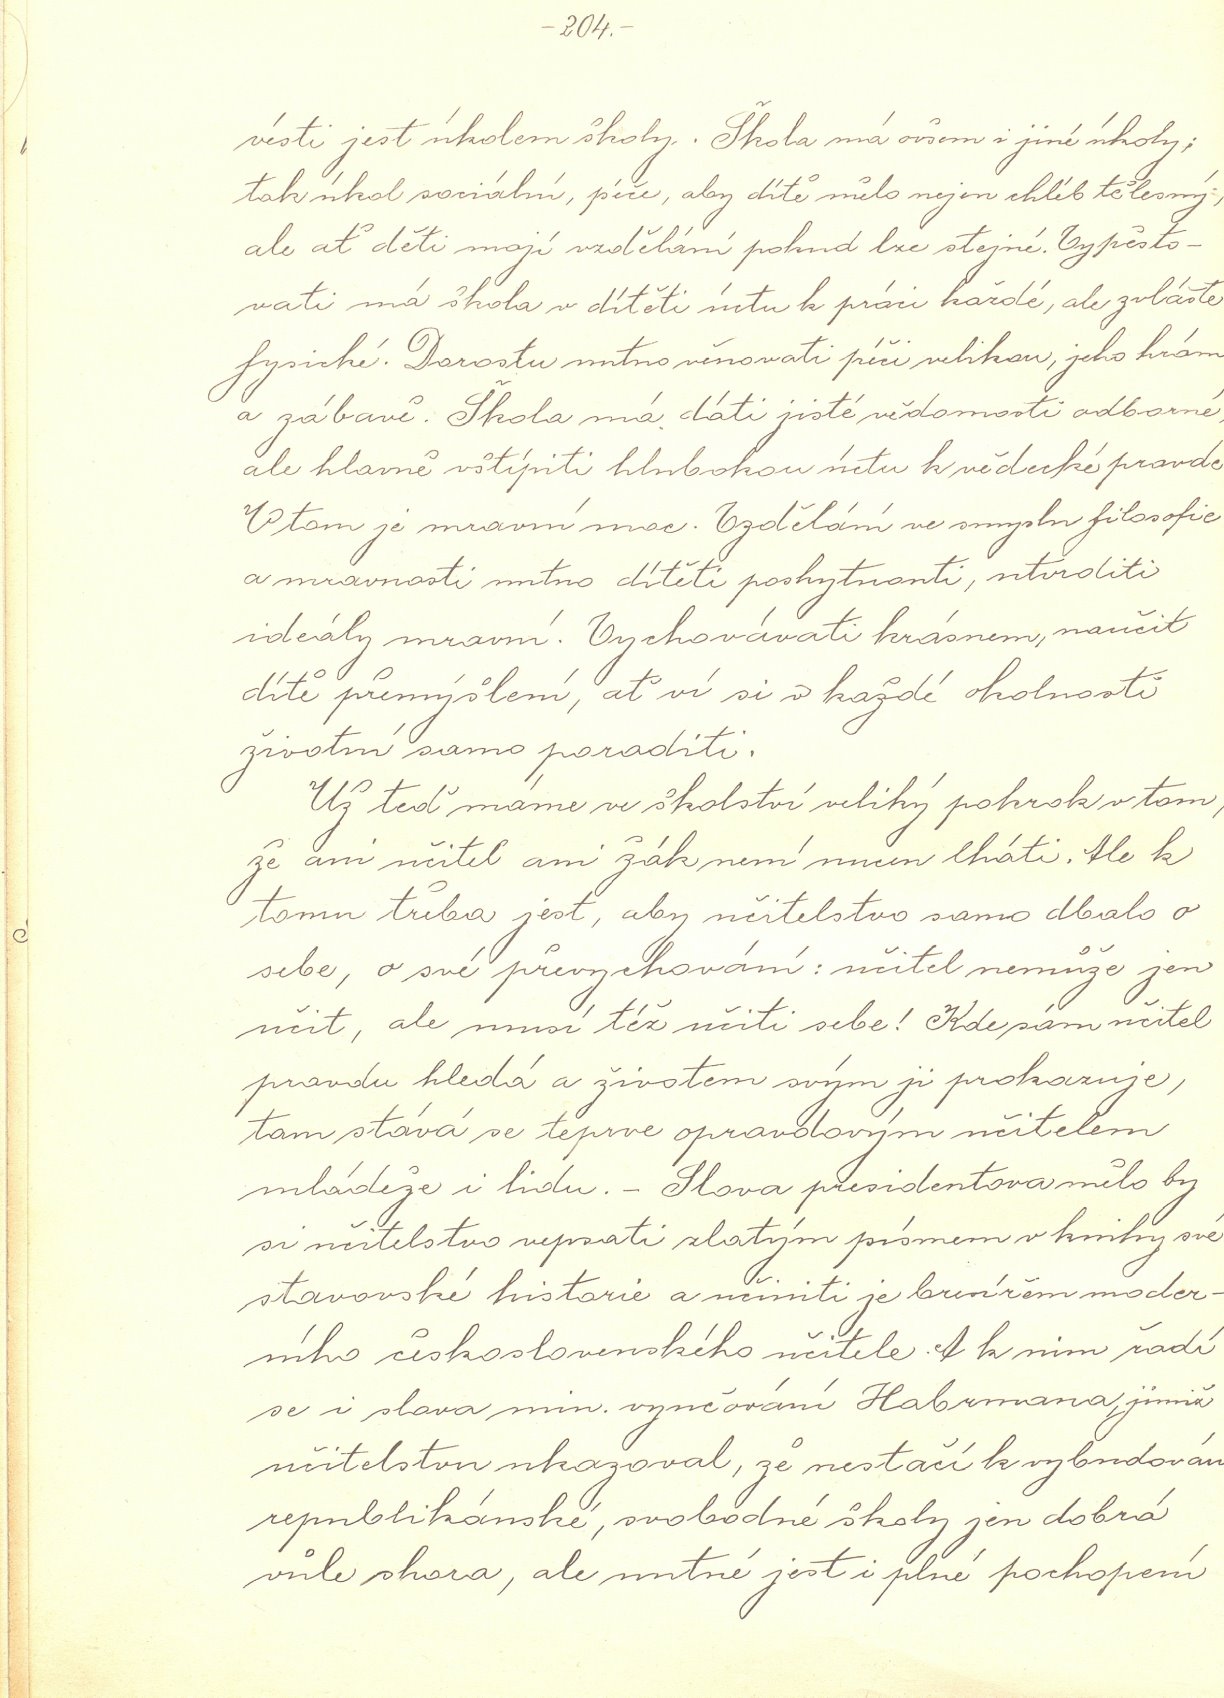 -204.-
vésti jest úkolem školy. Škola má ovšem i jiné úkoly;
tak úkol sociální, péče, aby dítě mělo nejen chléb tělesný,
ale ať děti mají vzdělání pokud lze stejné. Vypěsto-
vati má škola v dítěti úctu k práci každé, ale zvláště
fysické. Dorostu nutno věnovati péči velikou, jeho hrám
a zábavě. Škola má dáti jisté vědomosti odborné,
ale hlavně vštípiti hlubokou úctu k vědecké pravdě
V tom je mravní moc. Vzdělání ve smyslu filosofie
a mravnosti nutno dítěti poskytnouti, utvrditi
ideály mravní. Vychovávati krásnem, naučit
dítě přemýšlení, ať ví si v každé okolnosti
životní samo poraditi.
Už teď máme ve školství veliký pokrok v tom,
že ani učitel ani žák není nucen lháti. Ale k
tomu třeba jest, aby učitelstvo samo dbalo o
sebe, o své převychování: učitel nemůže jen
učit, ale musí též učiti sebe! Kde sám učitel
pravdu hledá a životem svým ji prokazuje,
tam stává se teprve opravdovým učitelem
mládeže i lidu. - Slova presidentova mělo by
si učitelstvo vepsati zlatým písmem v knihy své
stavovské historie a učiniti je brevířem moder-
ního československého učitele. A k nim řadí
se i slova min. vyučování Habrmana, jimiž
učitelstvu ukazoval, že nestačí k vybudování
republikánské, svobodné školy jen dobrá
vůle shora, ale nutné jest i plné pochopení